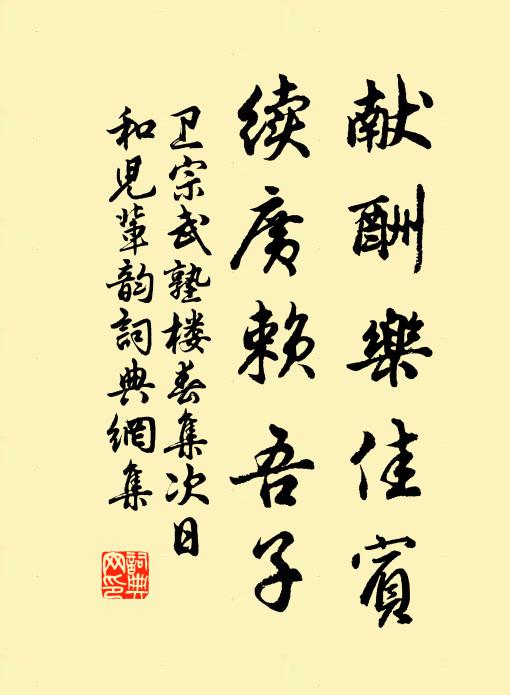 献酬樂佳賓
續賡賴吾子
卫宗武塾楼春集次日
和児輩韵詞典網集
詞典网印